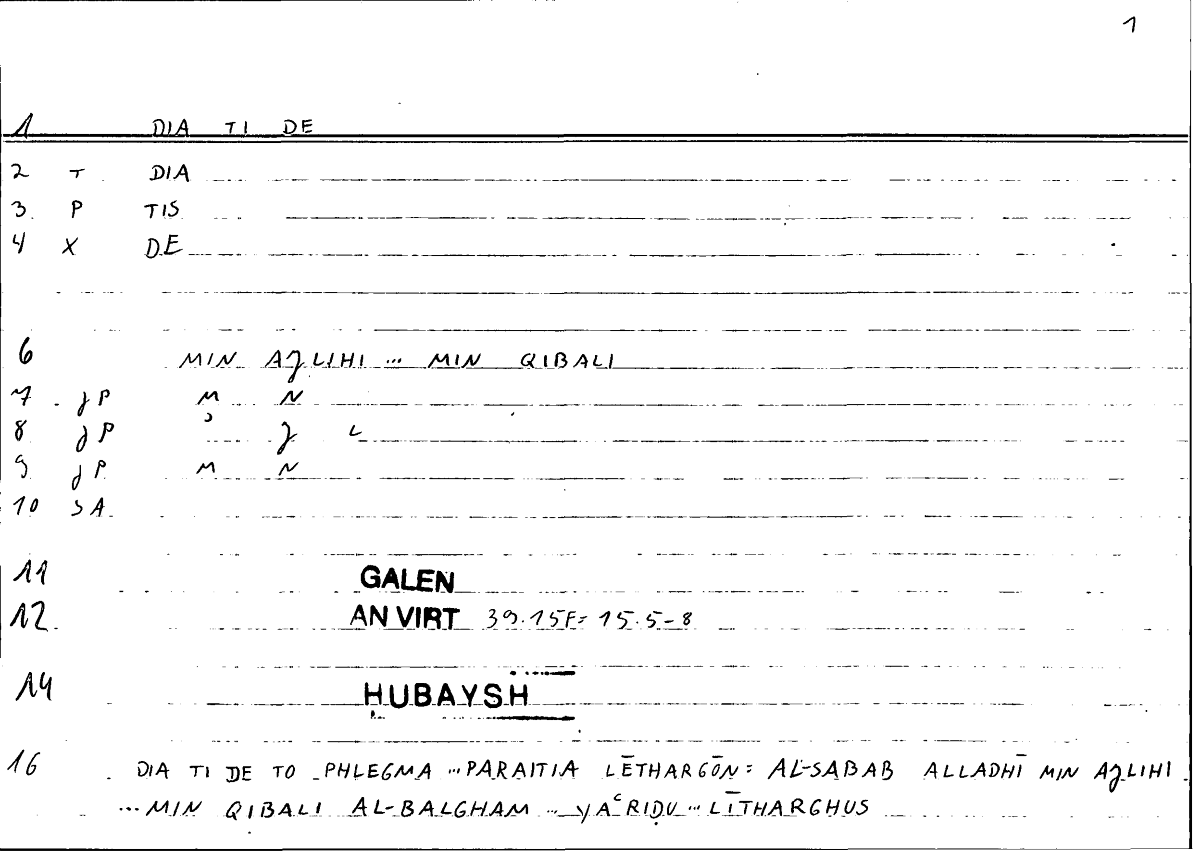 1
1 DIA TI DE
2 T DIA
3 P TIS
4 X DE
6 MIN AJLIHI ... MIN QIBALI
7 JP M N
8 JP ʾ J L
9 JP M N
10 SA
11 GALEN
12 AN VIRT 39.15F= 15.5-8
14 ḤUBAYSH
16 DIA TI DE TO PHLEGMA ... PARAITIA LĒTHARGŌN: AL-SABAB ALLADHĪ MIN AJLIHI
... MIN QIBALI AL-BALGHAM ... YAʿRIḌU ... LĪTHARGHUS